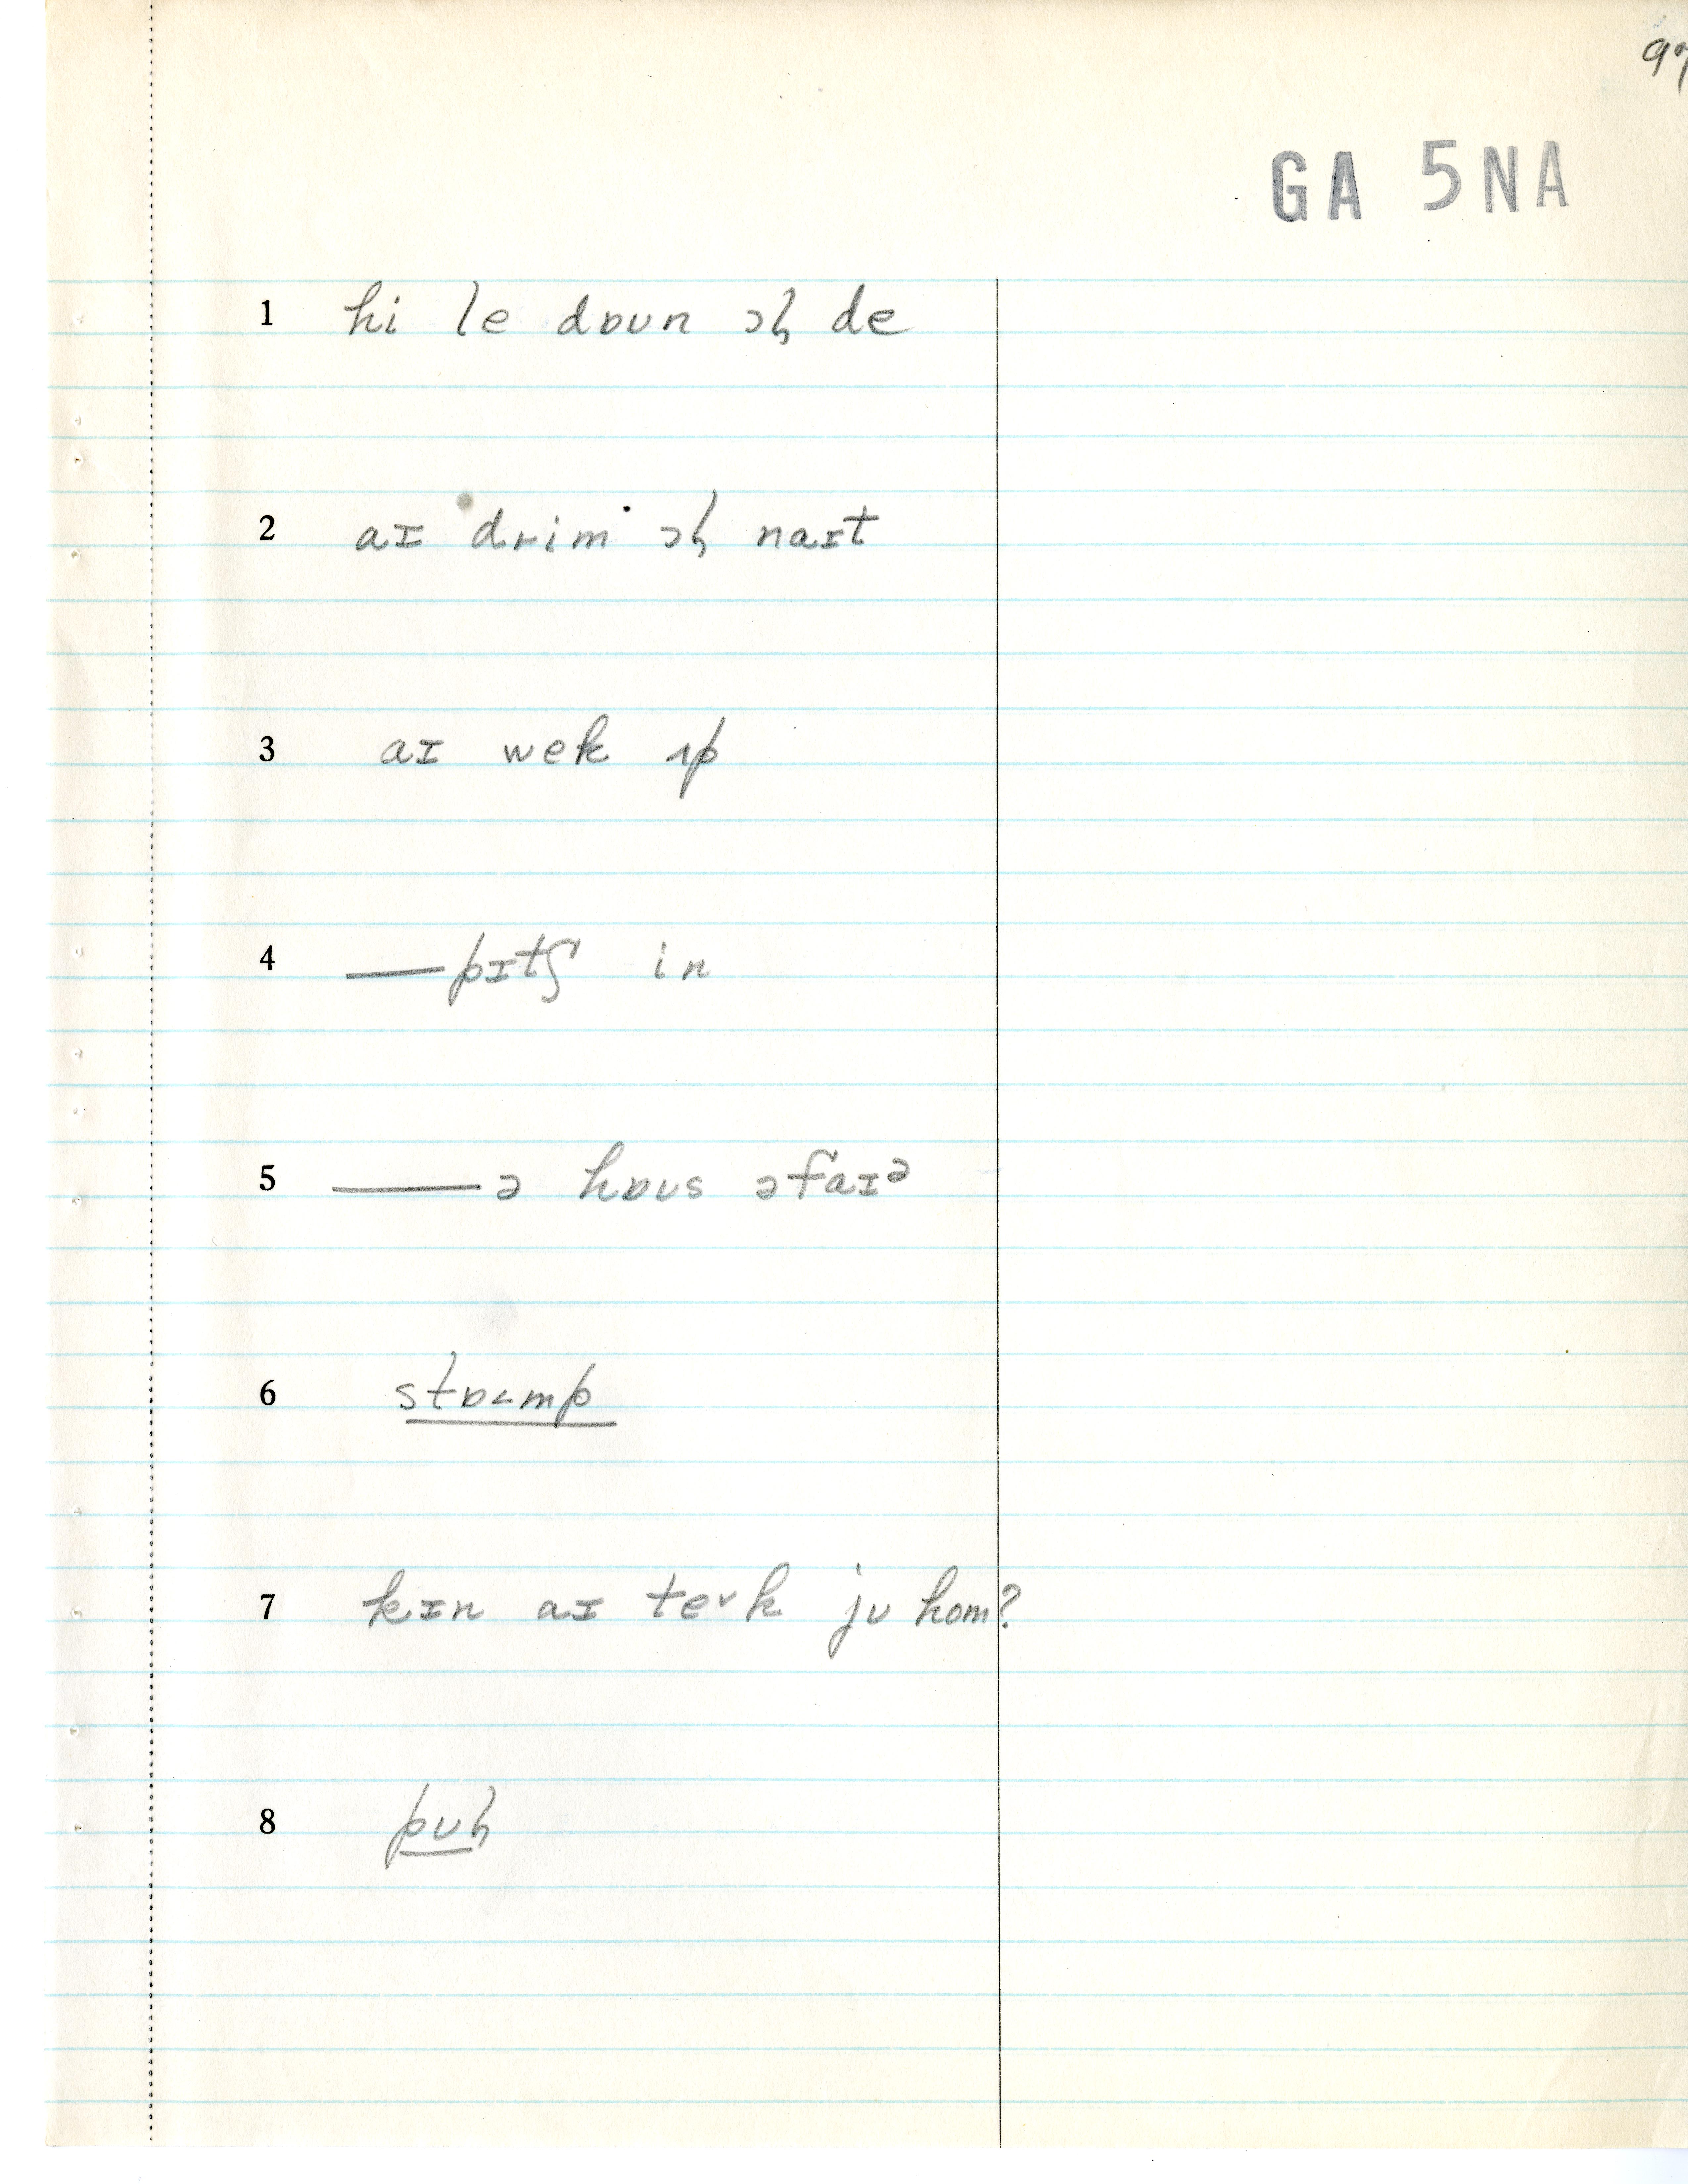 97
GA 5NA
1 hi le dɒʊn ɔɫ de
2 aɪ drim ɔɫ naɪt
3 aɪ wek ʌp
4 —— pɪtʃ in
5 —— ə hɒʊs əfaɪᵊ
6 stɒ<mp
7 kɪn aɪ te˅k jʊ hom?
8 pʊɫ